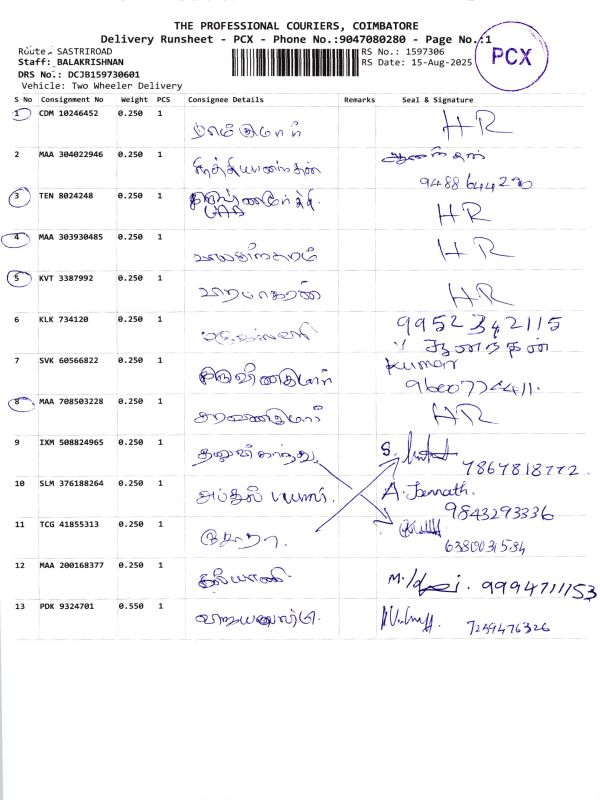 THE PROFESSIONAL COURIERS, COIMBATORE
Delivery Runsheet - PCX - Phone No.:9047080280 - Page No.:1
PCX
Route: SASTRIROAD
RS No.: 1597306
Staff: BALAKRISHNAN
RS Date: 15-Aug-2025
DRS No.: DCJB159730601
Vehicle: Two Wheeler Delivery
S No Consignment No Weight PCS Consignee Details Remarks Seal & Signature
1 CDM 10246452 0.250 1 ராம்குமார் HR
2 MAA 304022946 0.250 1 ஆனந்தன்
3 TEN 8024248 0.250 1 HR
4 MAA 303930485 0.250 1 HR
5 KVT 3387992 0.250 1 HR
6 KLK 734120 0.250 1 9952342115
ஆனந்தன்
7 SVK 60566822 0.250 1 Kumar
8 MAA 708503228 0.250 1 சரவணகுமார் HR
9 IXM 508824965 0.250 1 S.
7867818772
10 SLM 376188264 0.250 1 A. Jannath.
9843293336
11 TCG 41855313 0.250 1
6380031584
12 MAA 200168377 0.250 1 கல்யாணி 9994711153
13 PDK 9324701 0.550 1 7259476326